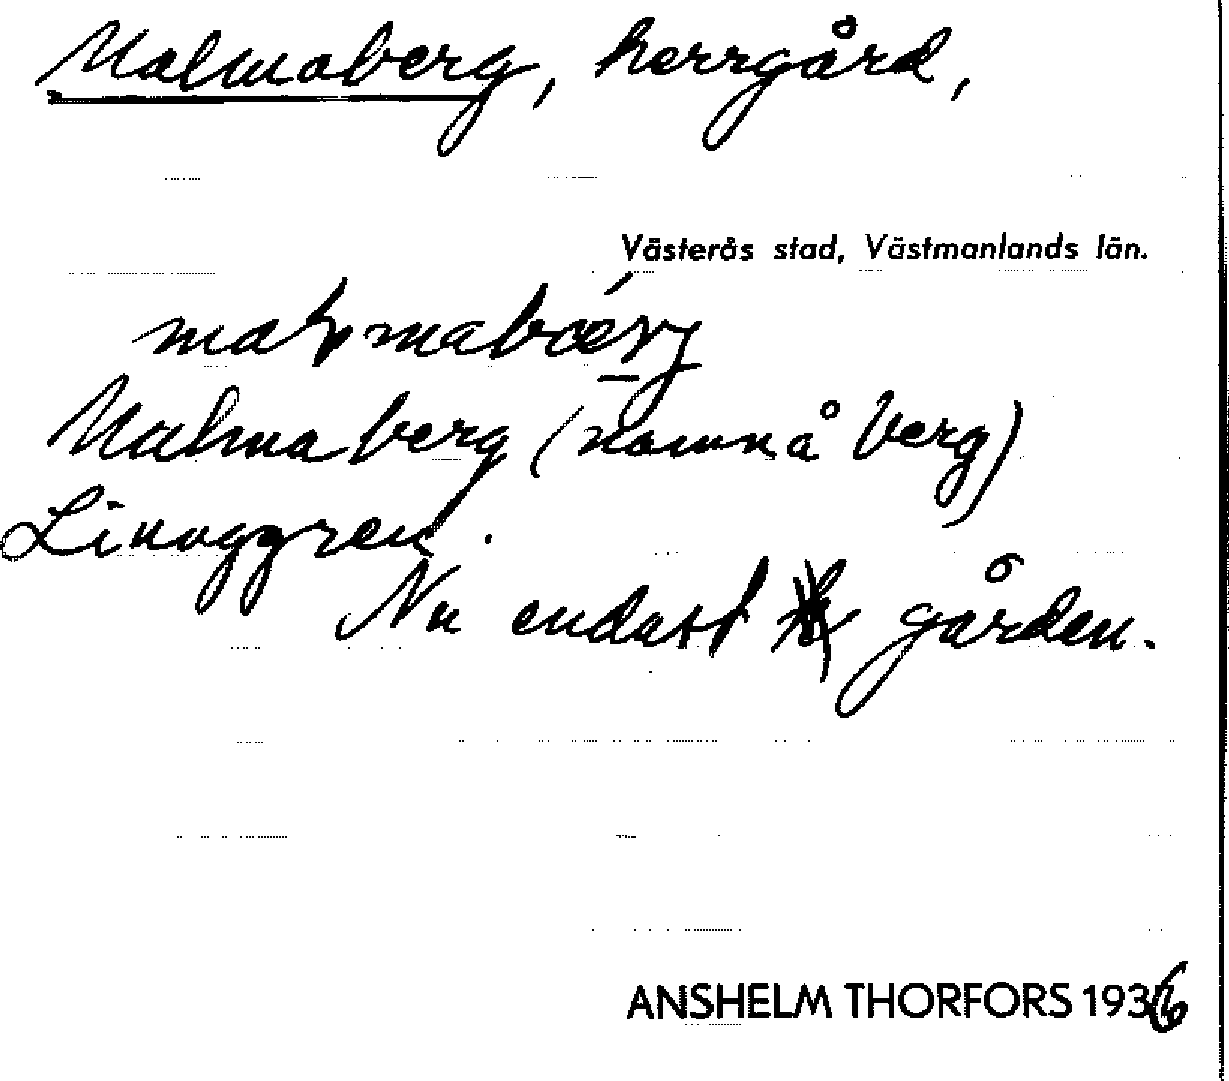 Malmaberg, herrgård,
Västerås stad, Västmanlands län.
Malmaberg (namn å berg)
Nu endast gården.
ANSHELM THORFORS 1936